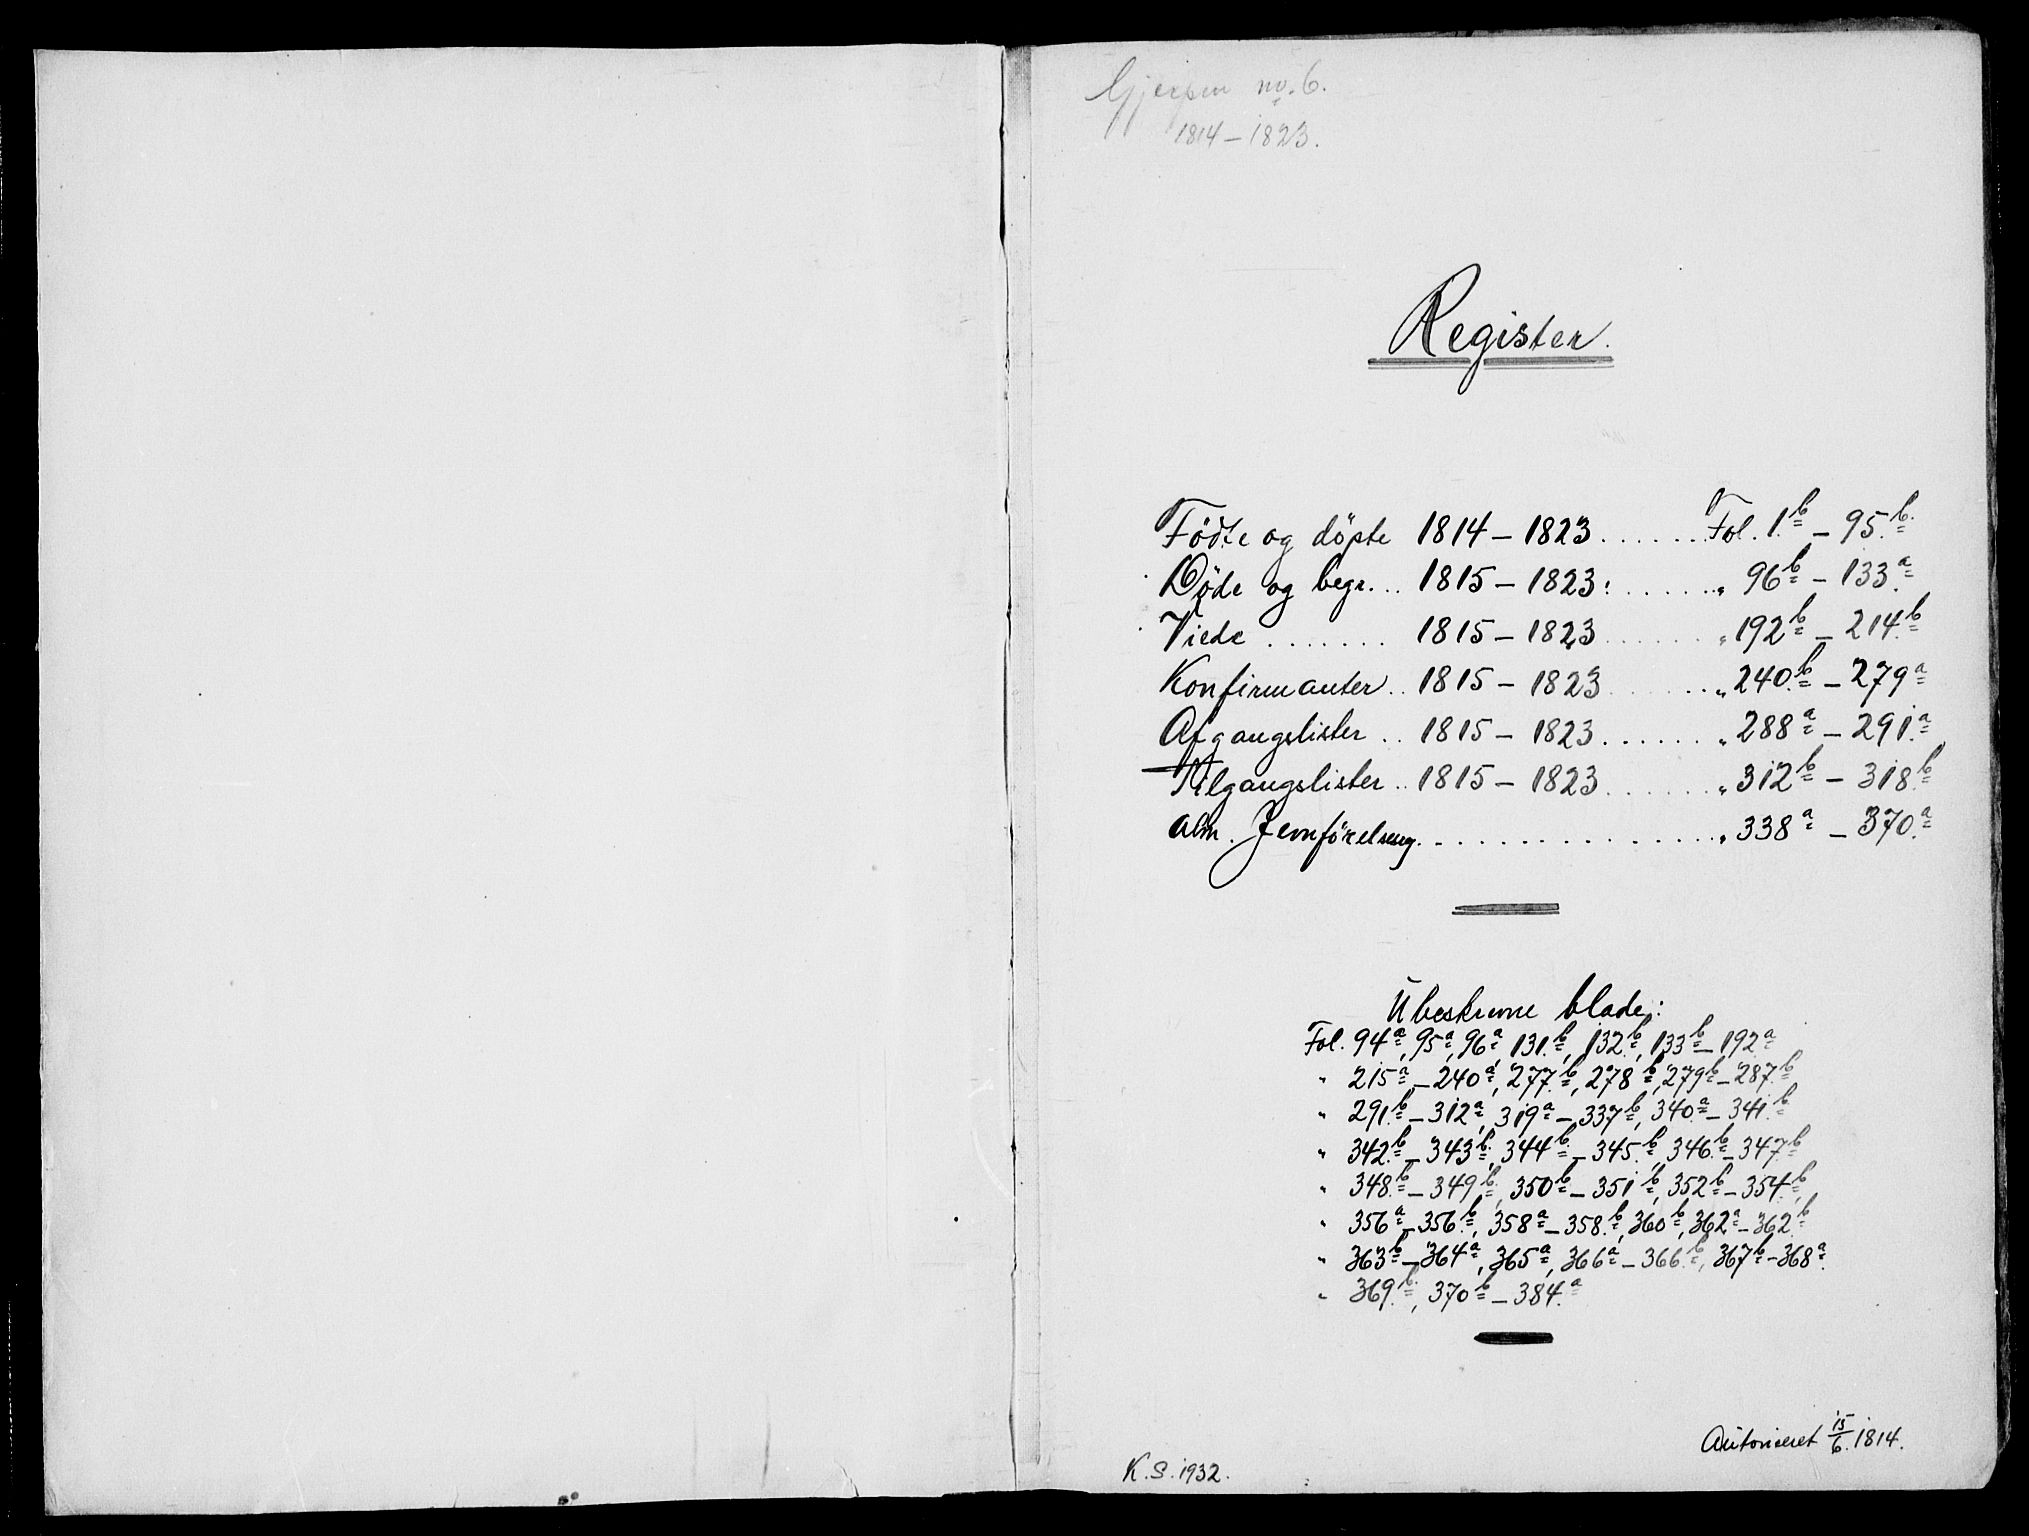 Gjerpen no. 6.
1814 – 1823.
Register.
Födte og döpte 1814 – 1823 ...... Fol. 1.b – 95.b
Döde og begr. .. 1815 – 1823: ...... „ 96b – 133.a
Viede ....... 1815 – 1823 ...... „ 192b – 214.b
Konfirmanter .. 1815 – 1823 ...... „ 240.b – 279a
Afgangslister .. 1815 – 1823 ...... „ 288a – 291.a
Tilgangslister .. 1815 – 1823 ...... „ 312b – 318.b
Alm. Jemförelseeg. .............. „ 338a – 370.a
Ubeskrevne blade:
Fol. 94a, 95a, 96a, 131.b, 132.b, 133b – 192a
„ 215a – 240a, 277.b, 278b, 279b – 287.b
„ 291.b – 312a, 319a – 337b, 340.a – 341.b
„ 342.b – 343b, 344b – 345.b, 346.b – 347.b
„ 348.b – 349b, 350b – 351b, 352b – 354.b,
„ 356a – 356.b, 358a – 358.b, 360b, 362a – 362.b
„ 363b – 364a, 365a, 366a – 366.b, 367b – 368a.
„ 369.b, 370b – 384.a
Autoriseret 15/6. 1814.
K. S. 1932.